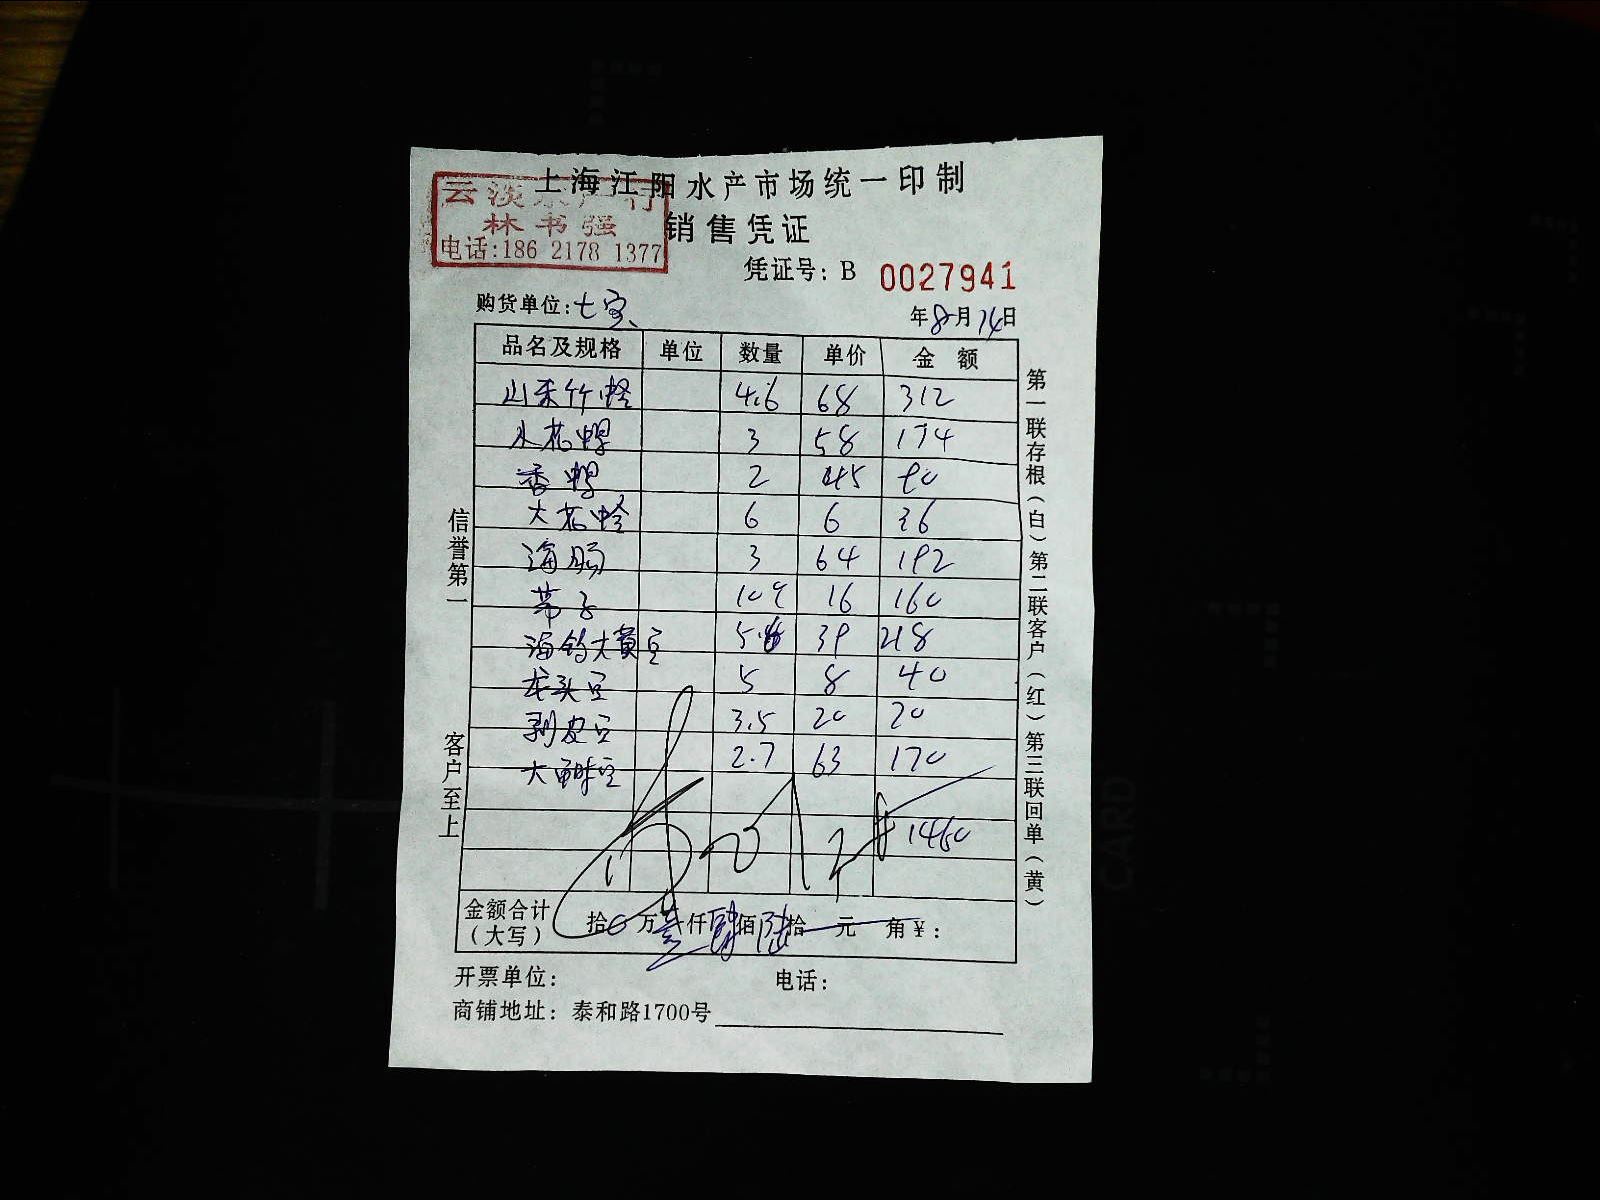 上海江阳水产市场统一印制
云淡水产行
林书强
电话:186 2178 1377
销售凭证
凭证号: B 0027941
购货单位:七宝 年8月14日
品名及规格 单位 数量 单价 金额
山东竹蛏 4.6 68 312
3 58 174
2 45 90
大花蛤 6 6 36
海肠 3 64 192
带子 10个 16 160
海钓大黄豆 5.6 39 218
龙头豆 5 8 40
剥皮豆 3.5 20 70
2.7 63 170
1460
金额合计(大写) 拾 万壹仟肆佰陆拾 元 角¥:
开票单位: 电话:
商铺地址: 泰和路1700号
信誉第一 客户至上
第一联存根(白)第二联客户(红)第三联回单(黄)